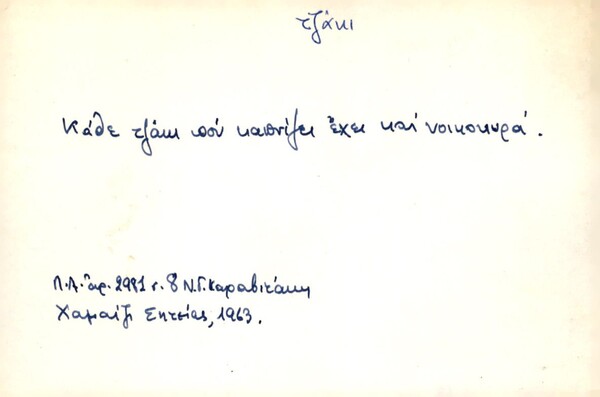 τζάκι
Κάθε τζάκι πού καπνίζει ἔχει καί νοικοκυρά.
Λ.Α. ἀρ. 2981 σ. 8 Ν.Γ. Καραβιτάκη
Χαμαίζι Σητείας, 1963.